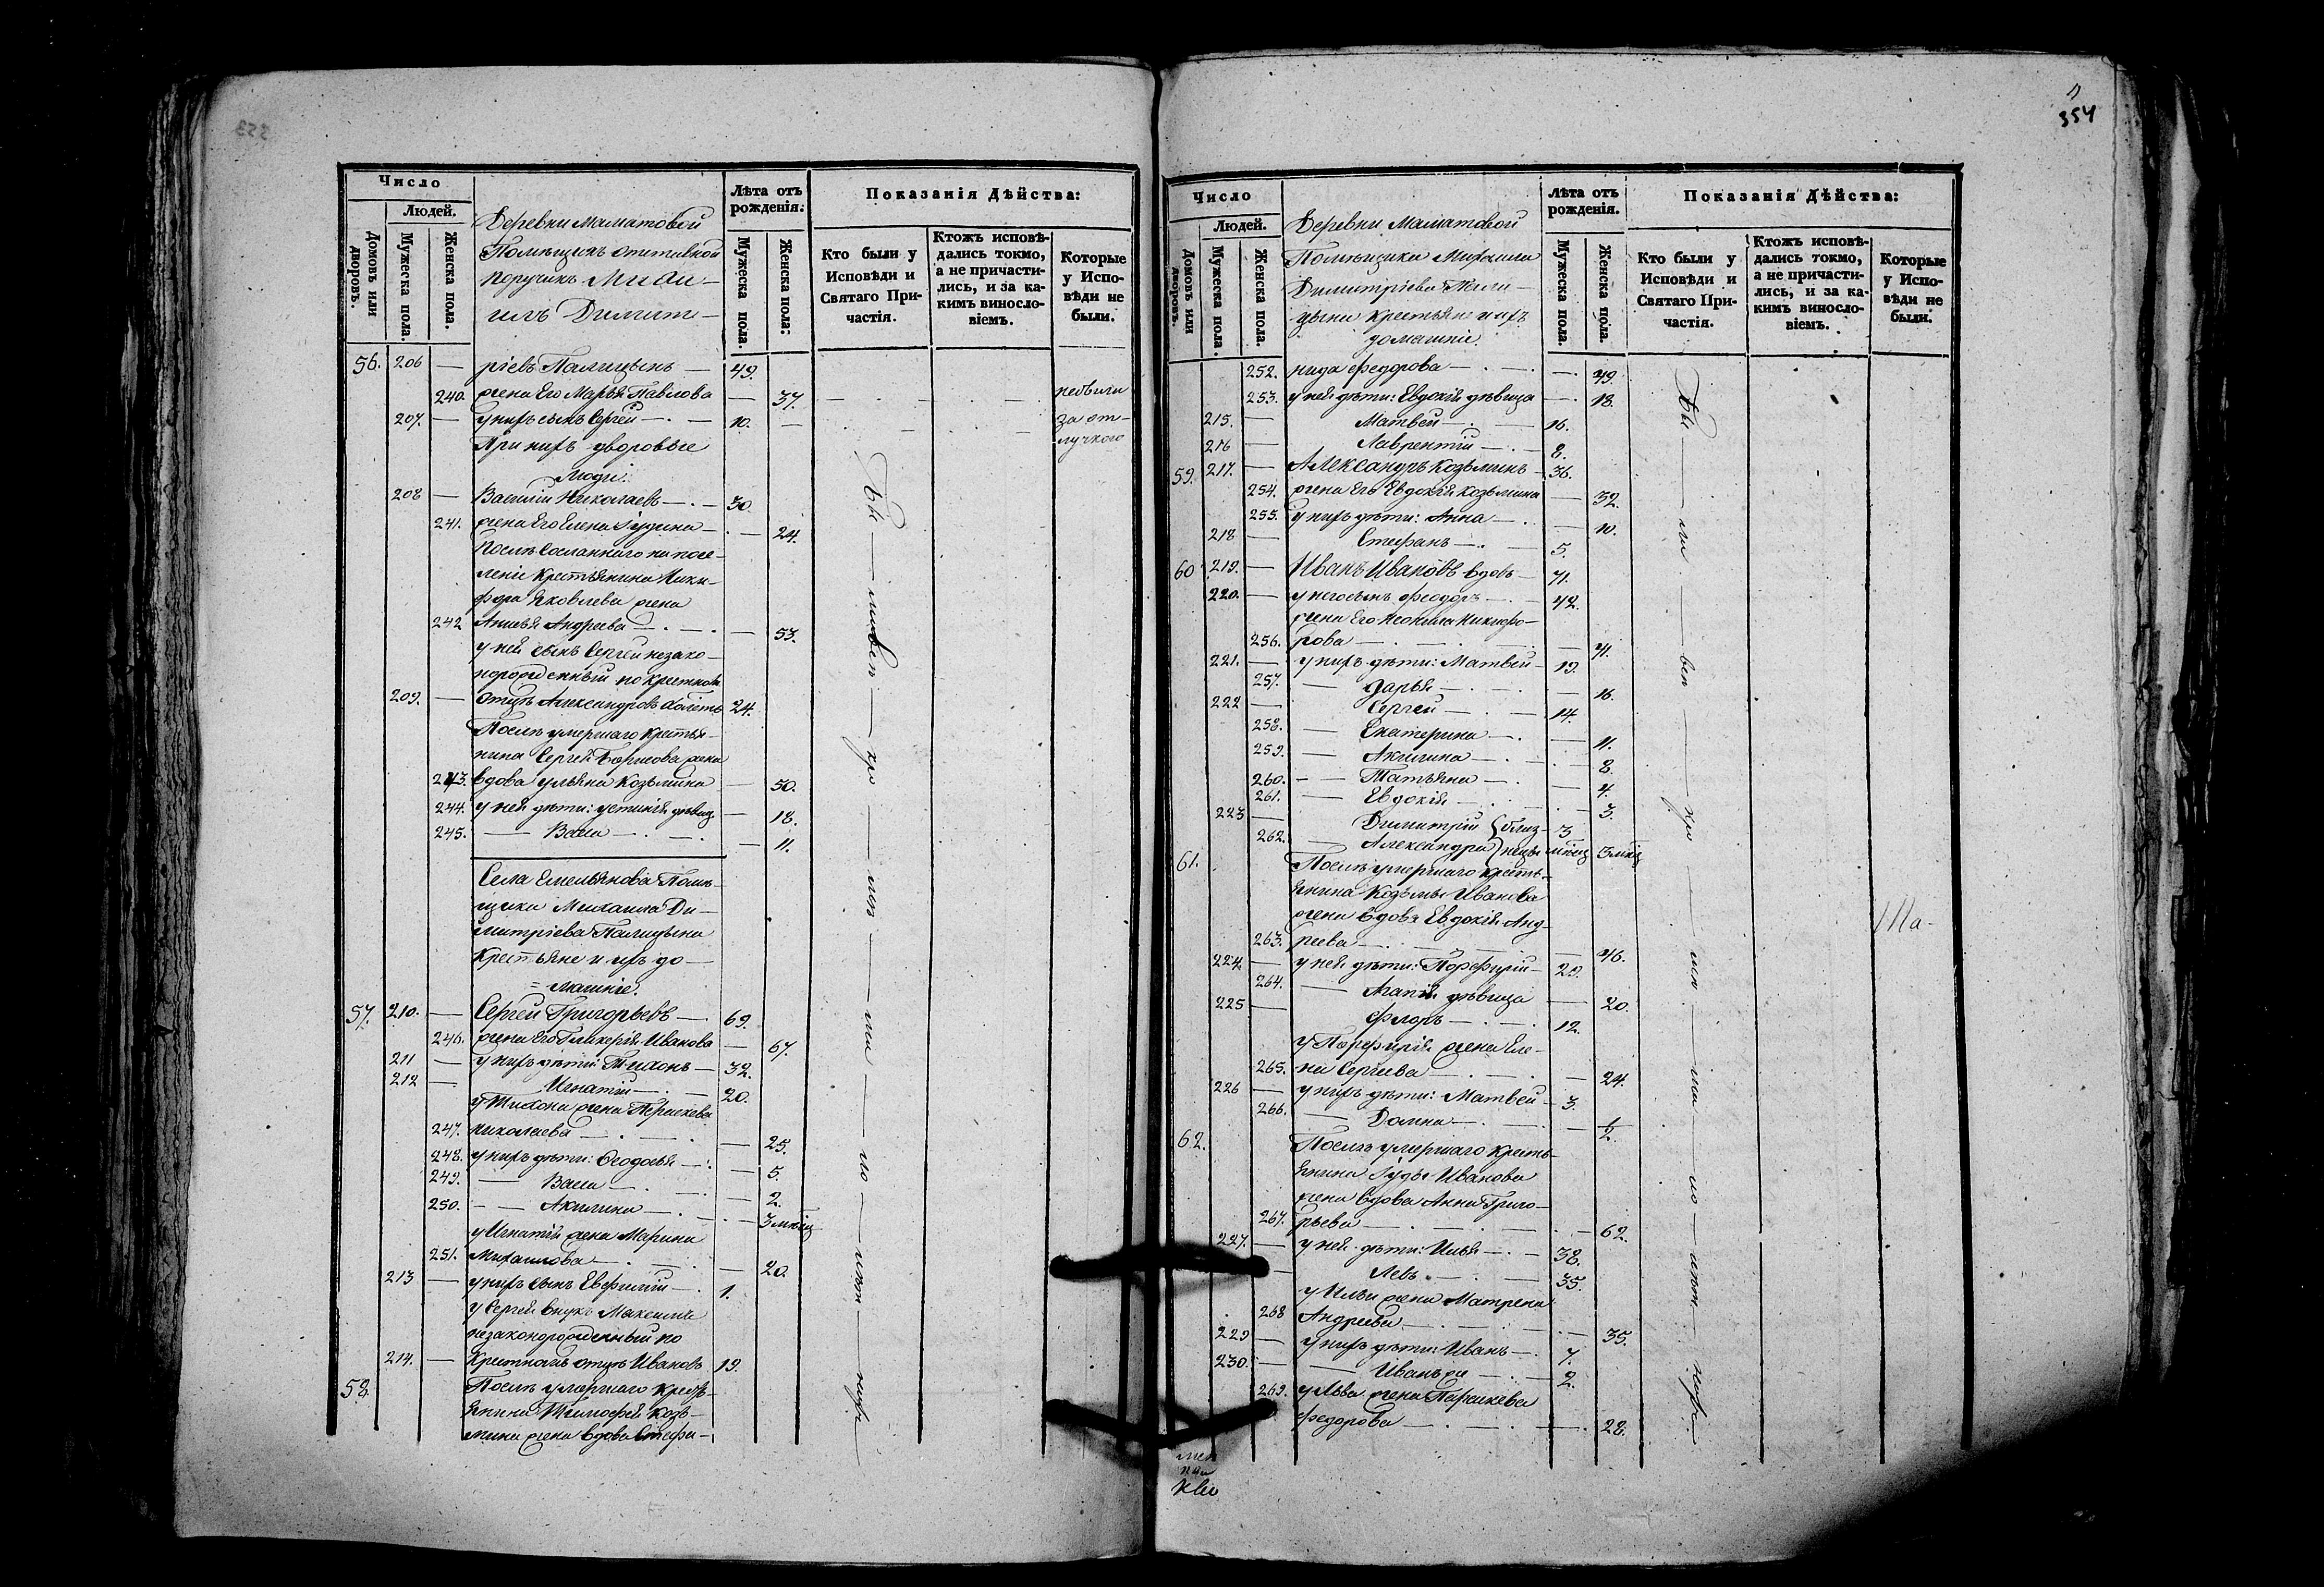 354
Число
Людей.
Домовъ или дворовъ.
Мужеска пола.
Женска пола.
Деревни Маматовой
Помѣщикъ отставной
поручикъ Миха-
илъ Димит-
Лѣта отъ рожденія.
Мужеска пола.
Женска пола.
Показанія Дѣйства:
Кто были у Исповѣди и Святаго Причастія.
Ктожъ исповѣдались токмо, а не причастились, и за какимъ винословіемъ.
Которые у Исповѣди не были.
56. 206 — ріевъ Палицынъ — 49.
240. жена его Марья Павлова — 37. небыли
207. — у нихъ сынъ Сергей — 10. — за от-
При нихъ дворовые лучкою
люди:
208 — Василій Николаевъ — 30.
241. жена его Елена Іудина — 24.
Послѣ сосланнаго на посе-
леніе крестьянина Ники-
фора Яковлева жена
242 Анисья Андреева — 53.
у ней сынъ Сергей незако-
норожденный по крестномъ
209. — отцѣ Александровъ холостъ 24.
Послѣ умершаго крестья-
нина Сергея Борисова жена
243. вдова Ульяна Козьмина — 50.
244. у ней дѣти: Устинія дѣвиц. — 18.
245. — Васса — 11.
Села Емельянова Помѣ-
щика Михаила Ди-
митріева Палицына
Крестьяне и ихъ до-
машніе.
57. 210. — Сергей Григорьевъ — 69.
246. жена его Гликерія Иванова — 67.
211 — у нихъ дѣти Тихонъ — 32.
212 — Игнатій — 20.
у Тихона жена Параскева
247. Николаева — 25.
248. у нихъ дѣти: Ѳеодосья — 5.
249. — Васса — 2.
250. — Акилина — 3 мѣсц
у Игнатія жена Марина
251. Михаилова — 20.
213 — у нихъ сынъ Евфимій — 1.
у Сергея внукъ Максимъ
незаконорожденный по
214. — крестномъ отцѣ Ивановъ 19.
58. Послѣ умершаго крест-
янина Тимофея Козь-
мина жена вдова Стефа-
Бы — ли — вси
Число
Людей.
Домовъ или дворовъ.
Мужеска пола.
Женска пола.
Деревни Маматовой
Помѣщика Михаила
Димитріева Пали-
цына крестьяне и ихъ
домашніе.
Лѣта отъ рожденія.
Мужеска пола.
Женска пола.
Показанія Дѣйства:
Кто были у Исповѣди и Святаго Причастія.
Ктожъ исповѣдались токмо, а не причастились, и за какимъ винословіемъ.
Которые у Исповѣди не были.
252. нида Федорова — 49.
253. у ней дѣти: Евдокія дѣвица — 18.
215. — Матвей — 16.
216 — Лаврентій — 8.
59. 217. — Александръ Козьминъ — 36.
254. жена его Евдокія Козьмина — 32.
255. у нихъ дѣти: Анна — 10.
218 — Стефанъ — 5.
60 219. — Иванъ Ивановъ вдовъ — 71.
220. — у него сынъ Феодоръ — 42.
жена его Неонила Никифо-
256. рова — 41.
221. — у нихъ дѣти: Матвей — 19.
257. — Дарья — 16.
222 — Сергей — 14.
258. — Екатерина — 11.
259. — Акилина — 8.
260. — Татьяна — 4.
261. — Евдокія — 3.
223 — Димитрій близ- 3
262. — Александра нецы мѣсц 3 мѣсц
61. Послѣ умершаго кресть-
янина Козьмы Иванова
жена вдова Евдокія Анд-
263. реева — 46.
224. — у ней дѣти: Порфирій — 29.
264. — Агапія дѣвица — 20.
225 — Флоръ — 12.
у Порфирія жена Еле-
265. на Сергеева — 24.
226 — у нихъ дѣти: Матвей — 3.
266. — Домна — 1/2
62. Послѣ умершаго кресть-
янина Іуды Иванова
жена вдова Анна Григо-
267. рьева — 62.
227. — у ней дѣти: Илья — 38.
— Левъ — 35.
у Ильи жена Матрена
268 Андреева — 35.
229 — у нихъ дѣти: Иванъ — 7.
230. — Иванъ же — 2.
269. у Льва жена Параскева
Федорова — 28.
Бы — ли — вси